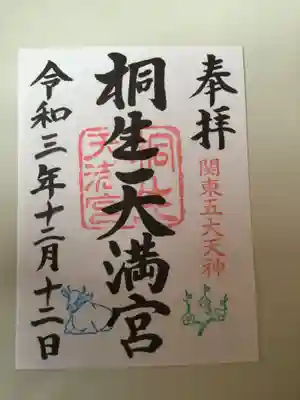 奉拝
関東五大天神
桐生天満宮
桐生
天満宮
令和三年十二月十二日